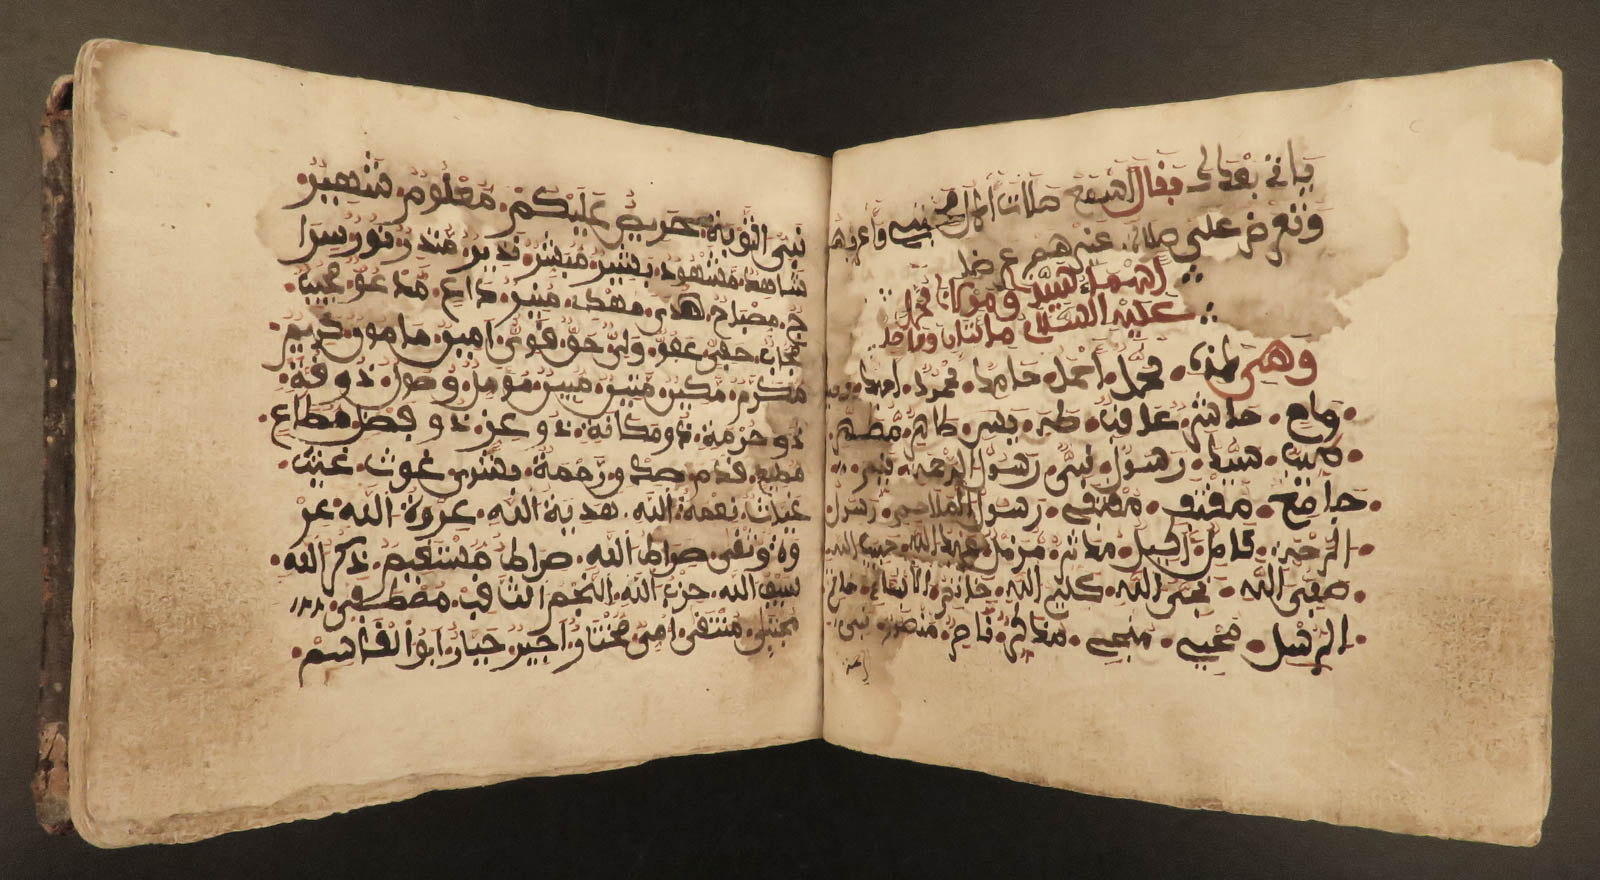 ياتي بعدي فقال اسمع صلاة اهل محبتي واعرفهم
وتعرض علي صلاة غيرهم عرضا
اسما سيدنا ومولانا محمد
عليه السلام مائتان وواحد
وهي هذه محمد احمد حامد محمود احيد وحيد
ماح حاشر عاقب طه يس طاهر مطهر
طيب سيد رسول نبي رسول الرحمة قيم
جامع مقتف مقفى رسول الملاحم رسول
الرحة كامل اكليل مدثر مزمل عبد الله حبيب الله
صفي الله نجي الله كليم الله خاتم الانبياء خاتم
الرسل محيي منجي مذكر ناصر منصور نبي
نبي التوبة حريص عليكم معلوم شهير
شاهد مشهود بشير مبشر نذير منذر نور سرا
ج مصباح هدى مهدي منير داع مدعو مجيب
مجاب حفي عفو ولي حق قوي امين مامون كريم
مكرم مكين متين مبين مومل وصول ذو قوة
ذو حرمة ذو مكانة ذو عز ذو فضل مطاع
مطيع قدم صدق رحمة بشرى غوث غيث
غياث نعمة الله هدية الله عروة
وثقى صراط الله صراط مستقيم ذكر الله
سيف الله حزب الله النجم الثاقب مصطفى
مجتبى منتقى امي مختار اجير جبار ابو القاسم